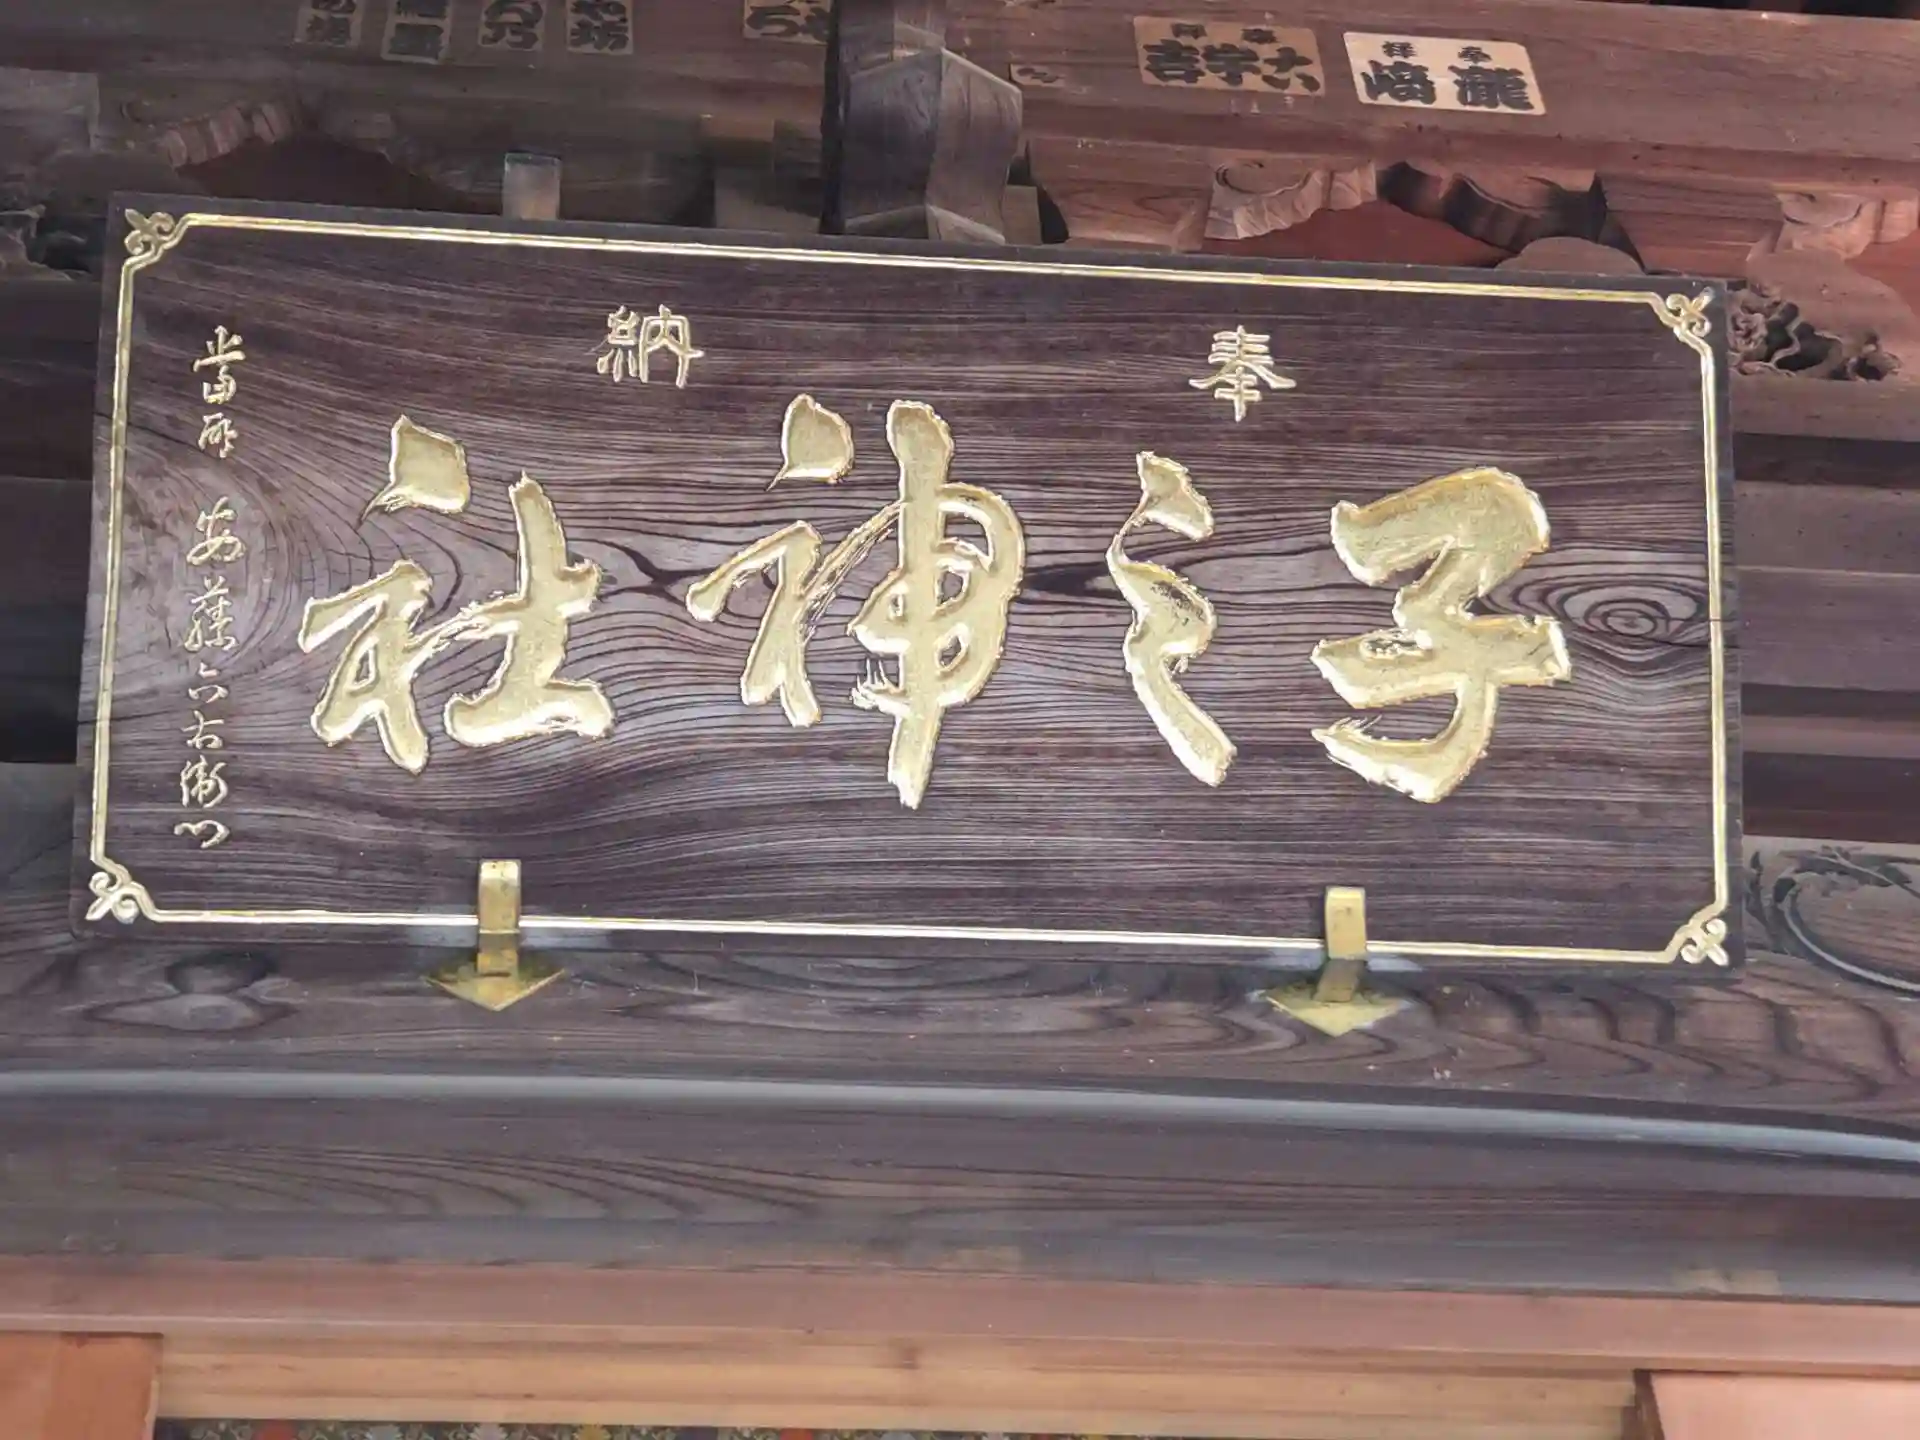 奉納
子之神社
當所 安藤六右衛門
奉拝
六宇吉
奉拝
瀧嶋